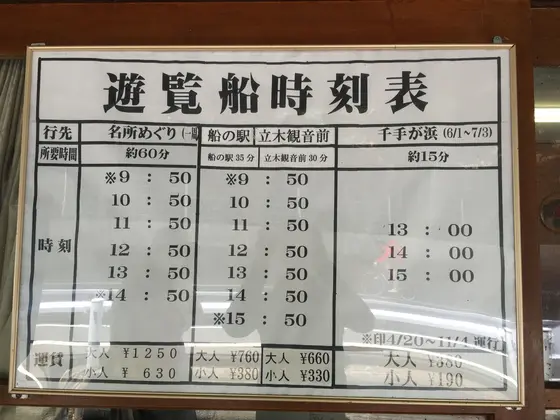 遊覧船時刻表
行先 名所めぐり(一周 船の駅 立木観音前 千手が浜 (6/1~7/3)
所要時間 約60分 船の駅35分 立木観音前30分 約15分
時刻
※9 : 50 ※9 : 50
10 : 50 10 : 50
11 : 50 11 : 50 13 : 00
12 : 50 12 : 50 14 : 00
13 : 50 13 : 50 15 : 00
※14 : 50 14 : 50
※15 : 50
※印4/20~11/4 運行
運賃 大人 ¥1250 大人 ¥760 大人 ¥660 大人
小人 ¥ 630 小人 ¥380 小人 ¥330 小人 ¥190